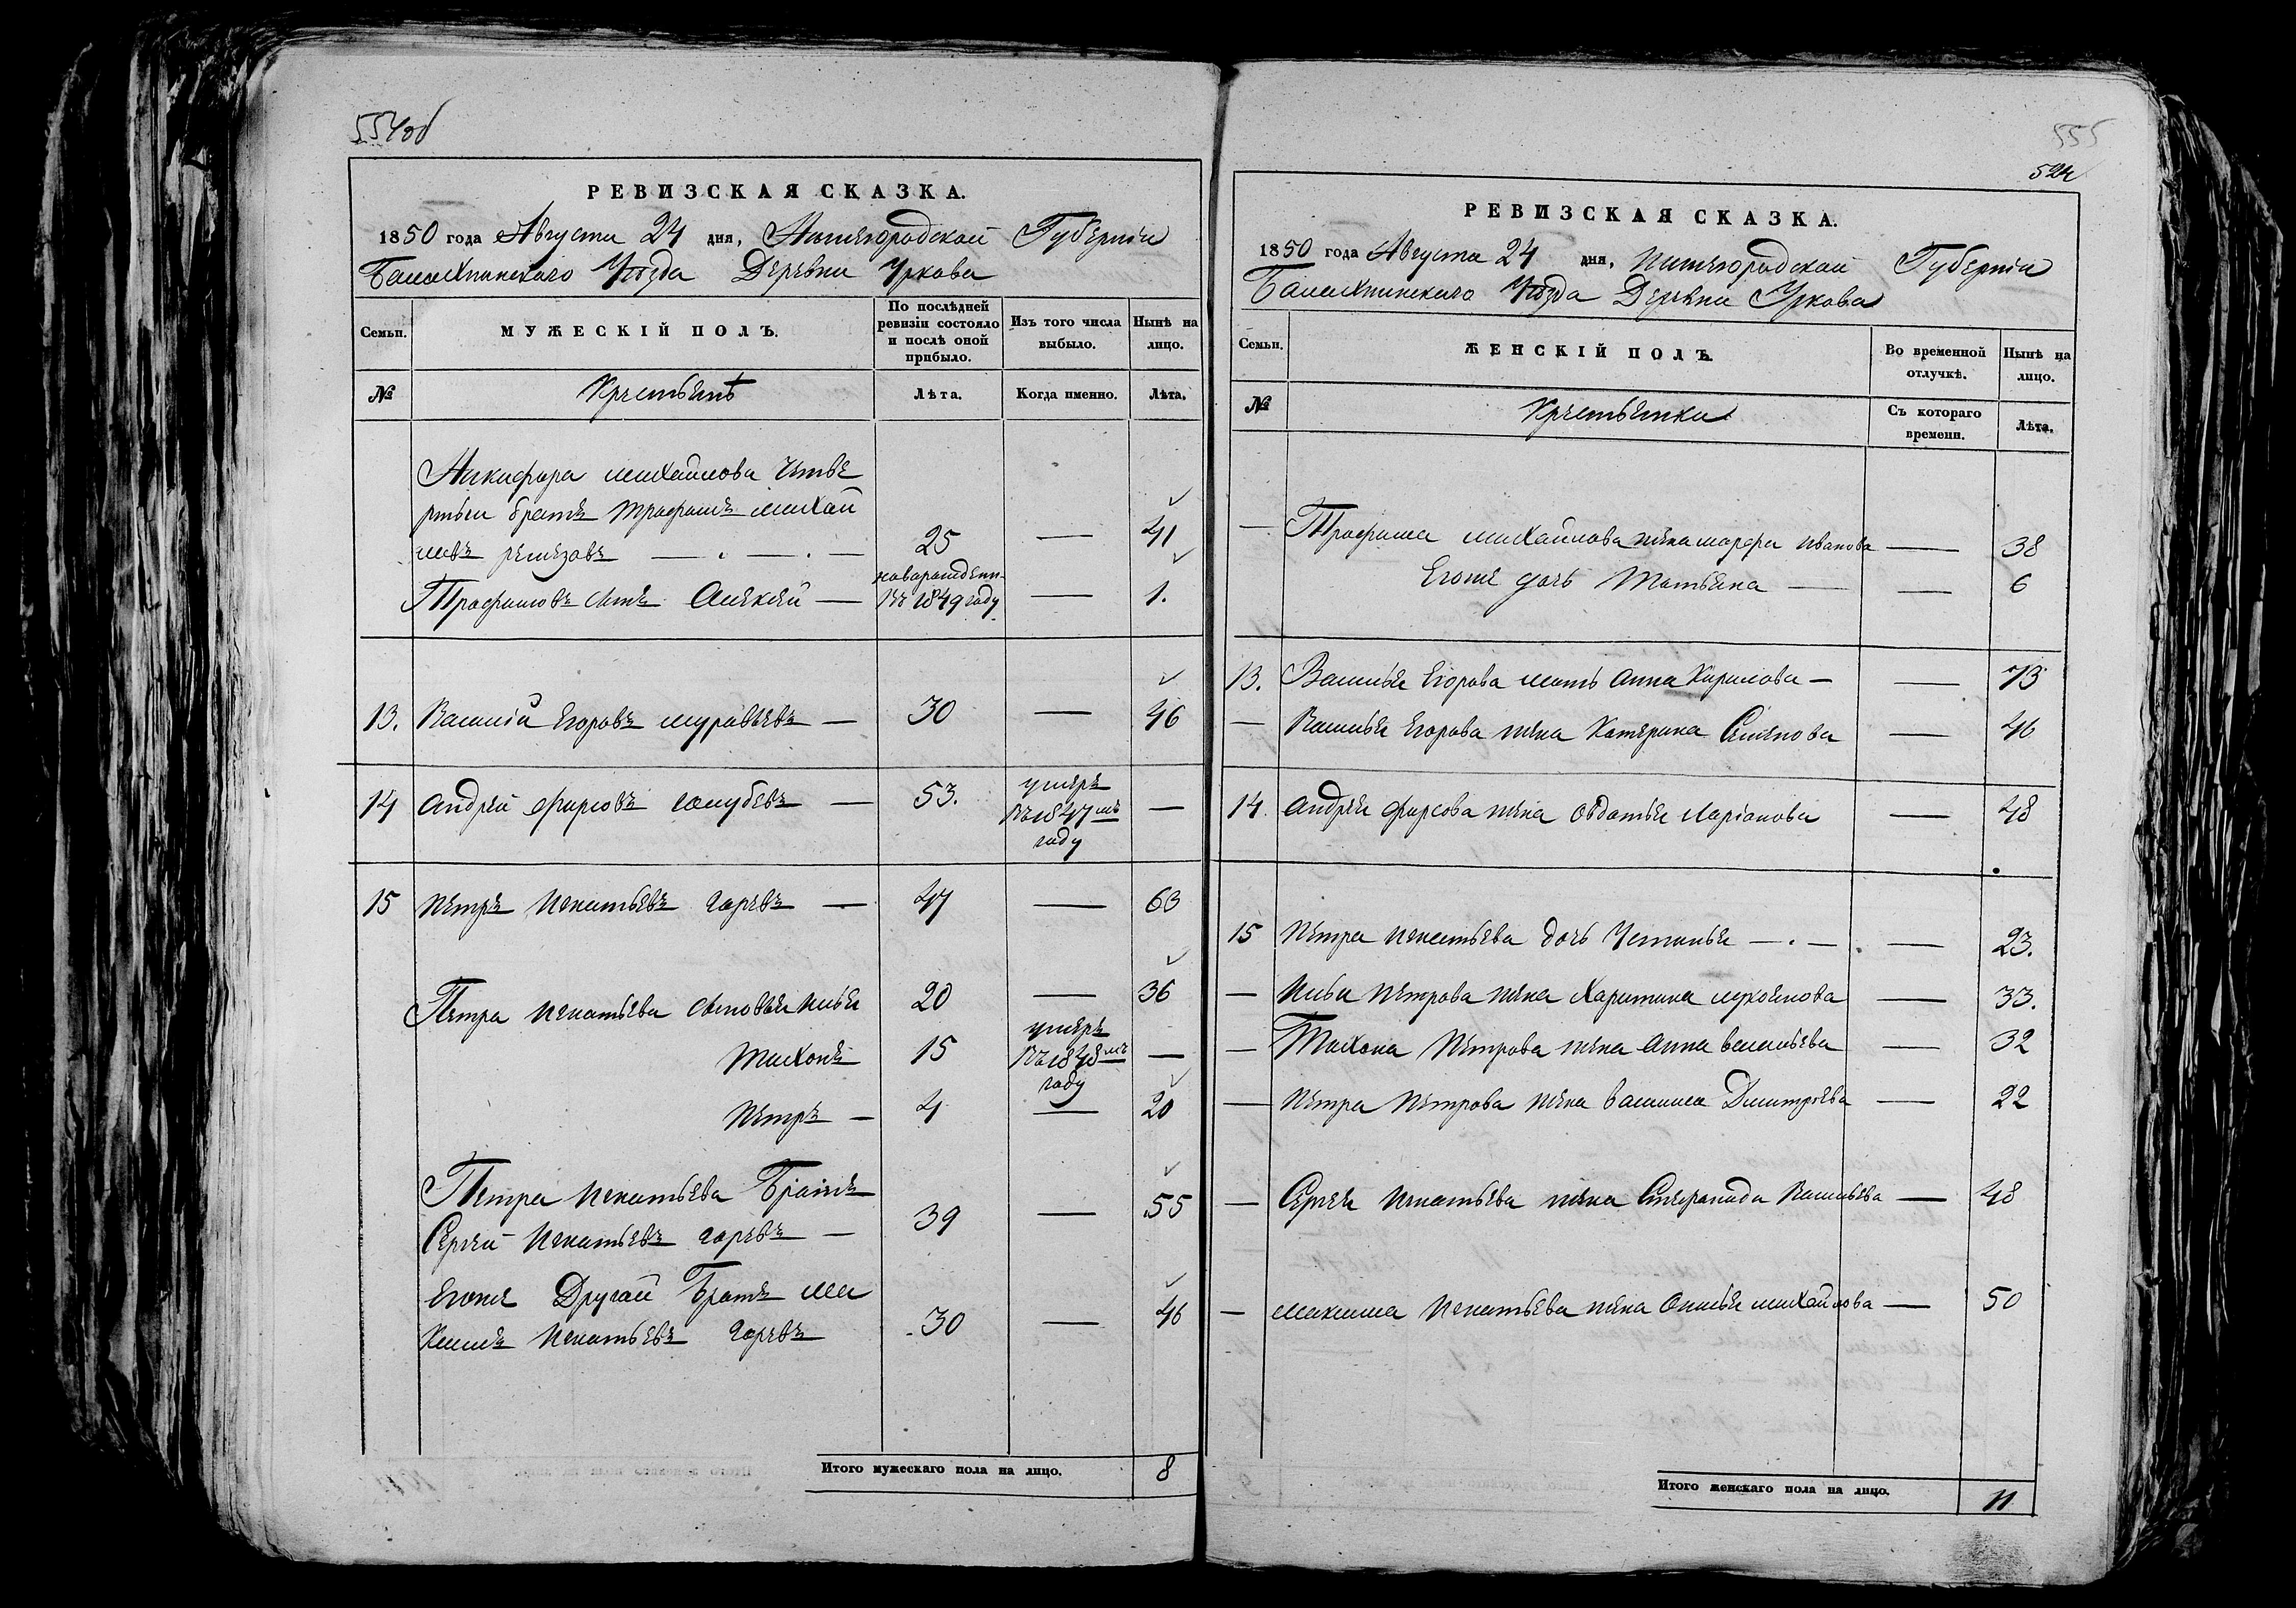 554об
РЕВИЗСКАЯ СКАЗКА.
1850 года Августа 24 дня, Нижегородской Губерніи
Балахнинскаго Уѣзда Деревни Уркова
Семьи.
МУЖЕСКІЙ ПОЛЪ.
По послѣдней ревизіи состояло и послѣ оной прибыло.
Изъ того числа выбыло.
Нынѣ на лицо.
№
Крестьянъ
Лѣта.
Когда именно.
Лѣта.
Никифора Михайлова Четве
ртый братъ Трафимъ Михай
ловъ Ремезовъ — . — . — 25 — 41
Трафимовъ Сынъ Алексей — новарожденн. въ 1849 году — 1.
13. Василій Егоровъ Муравьевъ — 30 — 46
14 Андрей Фирсовъ Голубевъ — 53. умеръ въ 1847мъ году —
15 Петръ Игнатьевъ Горевъ — 47 — 63
Петра Игнатьева Сыновья Илья 20 — 36
Тихонъ 15 умеръ въ 1848мъ году —
Петръ — 4 — 20
Петра Игнатьева Братъ
Сергей Игнатьевъ Горевъ — 39 — 55
Егоже Другай Братъ Ма
ксимъ Игнатьевъ Горевъ 30 — 46
Итого мужескаго пола на лицо. 8
555
524
РЕВИЗСКАЯ СКАЗКА.
1850 года Августа 24 дня, Нижегородской Губерніи
Балахнинскаго Уѣзда Деревни Уркова
Семьи.
ЖЕНСКІЙ ПОЛЪ.
Во временной отлучкѣ.
Нынѣ на лицо.
№
Крестьянка
Съ котораго времени.
Лѣта.
— Трафима Михайлова жена Марфа Иванова — 38
Егоже дочь Татьяна — — 6
13. Василья Егорова мать Анна Кирилова — — 73
— Василья Егорова жена Катерина Семенова — 46
14. Андрея Фирсова жена Овдотья Ларіанова — 48
15 Петра Игнатьева дочь Устинья — . — . — 23.
— Ильи Петрова жена Харитина — 33.
— Тихона Петрова жена Анна Васильева — 32
— Петра Петрова жена Василиса Дмитрева — 22
— Сергея Игнатьева жена Степанида Васильева — 48
— Максима Игнатьева жена Онисья Михайлова — 50
Итого женскаго пола на лицо. 11